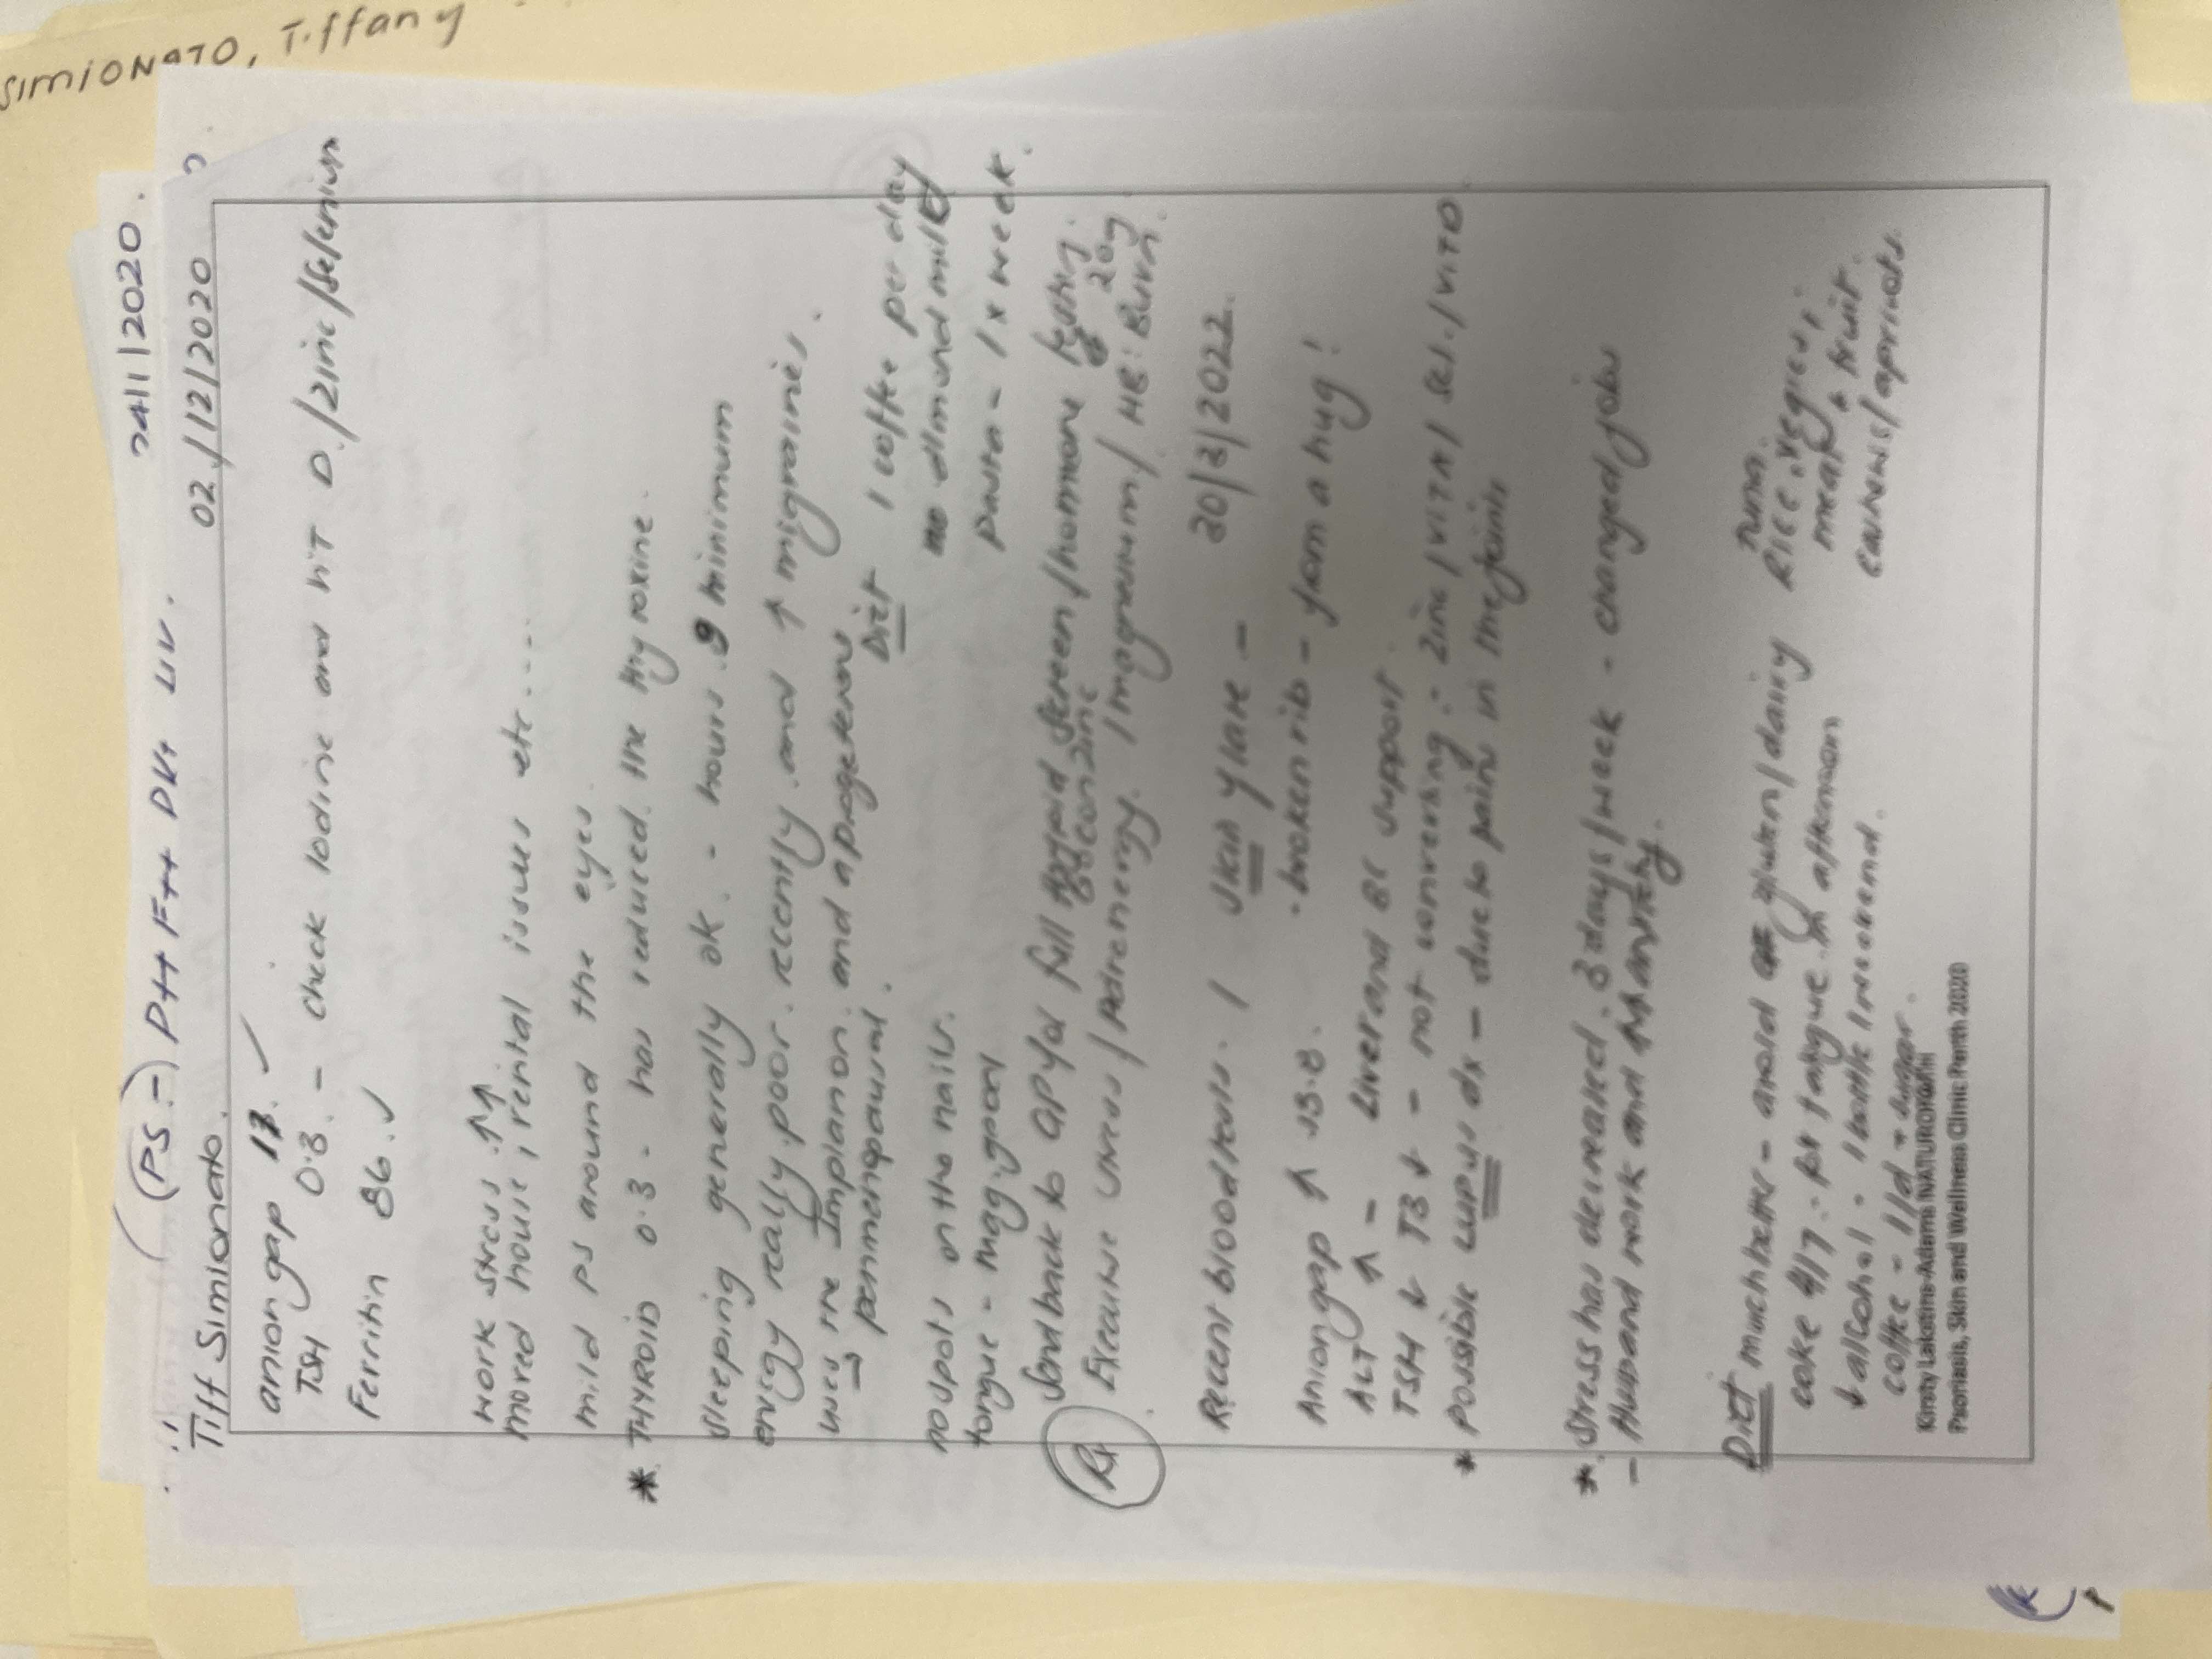 SIMIONATO, Tiffany
24/11/2020.
(PS.-) P++ F++ DK+ LIV.
Tiff Simionato. 02/12/2020
anion gap 17. ✓
TSH 0.3. - check Iodine and hit D./zinc/selenium
Ferritin 86. ✓
work stress. ↑↑
moved house, rental issues etc....
mild ps around the eyes.
* THYROID 0.3 - has reduced. the thyroxine.
sleeping generally ok. - hours. 9 minimum
energy really poor. recently. and ↑ migraines.
uses the Implanon. and
→ perimenopausal.
Diet 1 coffee per day
no almond milk
pasta - 1x week.
no spots on the nails.
tongue - Mag. good
Rx Send back to GP for full thyroid screen/hormone
Executive / Adrenergy. / magneum. / HB: Burn. 20g
Recent blood tests. / skin flare - 20/3/2022.
. broken rib - from a hug!
Anion gap ↑ 15.8.
ALT ↑ - Liver and BC support.
TSH ↓ T3 ↓ - not converting : zinc / VIT A / sel. / VIT D
* Possible Lupus dx - due to pain in the joints
*. Stress has decreased. 3 days/week - changed jobs
- Husband work and
Diet much better - avoid gluten/dairy
tuna.
Rice. veggies,
meat + fruit.
cashews/apricots.
coke 4/7 : for fatigue in afternoon
↓ alcohol. - 1 bottle / weekend.
coffee - 1/d + sugar.
Kirsty Lakatins-Adams NATUROPATH
Psoriasis, Skin and Wellness Clinic Perth 2020